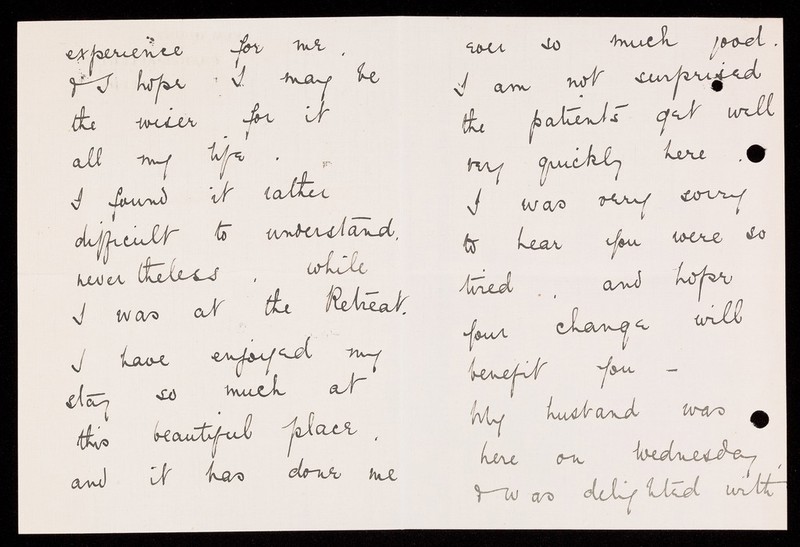 experience for me.
& I hope I may be
the wiser for it
all my life.
I found it rather
difficult to understand.
never theless. while
I was at the Retreat.
I have enjoyed my
stay so much at
this beautiful place,
and it has done me
ever so much good.
I am not surprised
the patients get well
very quickly here.
I was very sorry
to hear you were so
tired.. and hope
your change will
benefit you -
My husband was
here on Wednesday,
& was delighted with